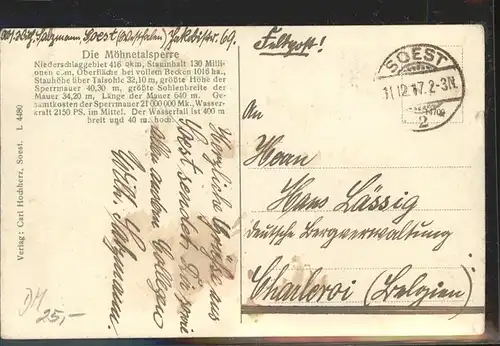 Salzmann, Soest (Westfalen) Jakobistr. 69.
Die Möhnetalsperre
Niederschlaggebiet 416 qkm, Stauinhalt 130 Milli-
onen cbm, Oberfläche bei vollem Becken 1016 ha.,
Stauhöhe über Talsohle 32,10 m, größte Höhe der
Sperrmauer 40,30 m, größte Sohlenbreite der
Mauer 34,20 m, Länge der Mauer 640 m. Ge-
samtkosten der Sperrmauer 21 000 000 Mk., Wasser-
kraft 2150 PS. im Mittel. Der Wasserfall ist 400 m
breit und 40 m. hoch.
Herzliche Grüße aus
Soest sendet Dir sowie
allen andern Collegen
Wilh. Salzmann.
Verlag: Carl Hochherz, Soest. L 4480
25,-
Feldpost!
SOEST
11.12.17. 2-3N.
2
An
Herrn
Hans Lässig
deutsche Bergverwaltung
Charleroi (Belgien)